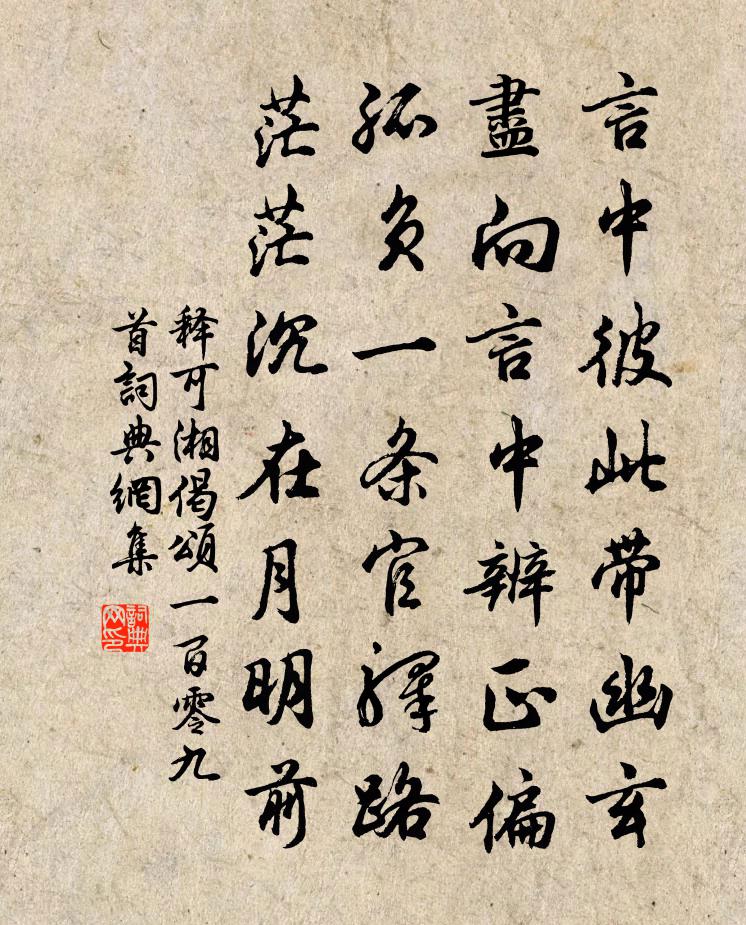 言中彼此帶幽玄
盡向言中辨正偏
孤負一条官驛路
茫茫沉在月明前
释可湘偈頌一百零九
首詞典網集
詞典
网印